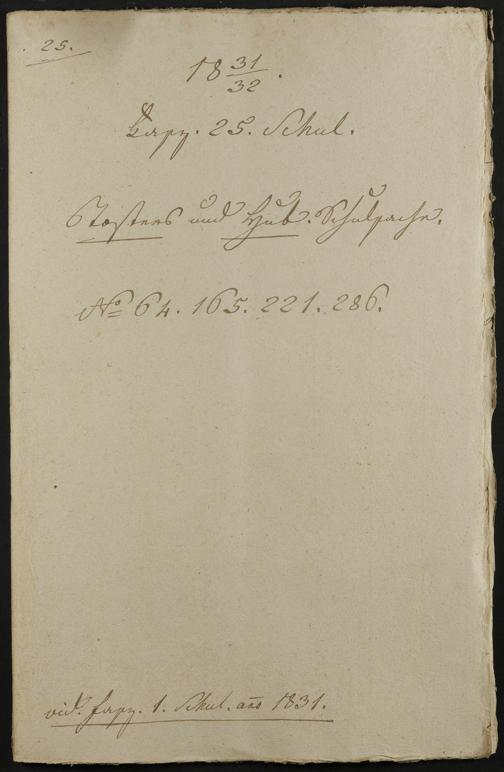 25.
18 31/32.
Fasz. 25. Schul.
und Hub. Schulsache.
No 64. 165. 221. 286.
vid. Fasz. 1. Schul. ano 1831.